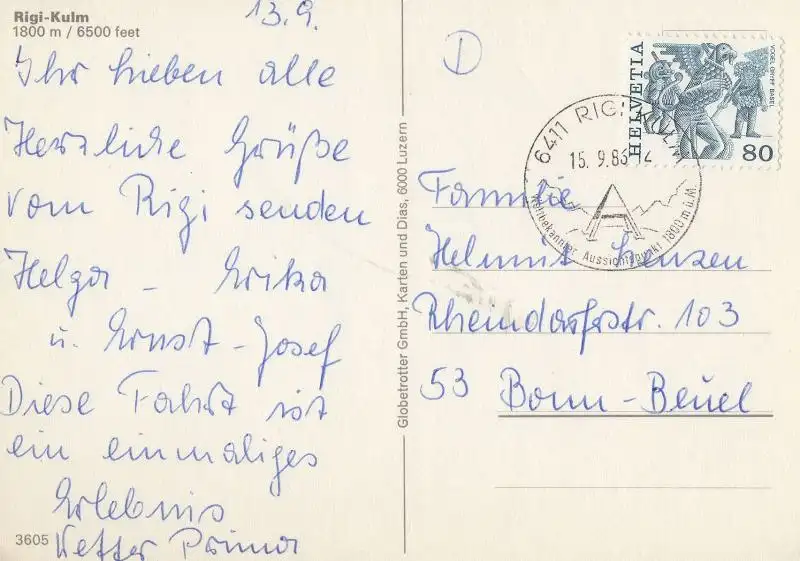 Rigi-Kulm
1800 m / 6500 feet
13.9.
Ihr Lieben alle
Herzliche Grüße
vom Rigi senden
Helga - Erika
u. Ernst-Josef
Diese Fahrt ist
ein einmaliges
Erlebnis
Wetter Prima
3605
Globetrotter GmbH, Karten und Dias, 6000 Luzern
D
HELVETIA
VOGEL GRYFF BASEL
80
6411 RIGI KULM
15.9.86
Weltbekannter Aussichtspunkt 1800 m ü. M.
Familie
Helmut
Rheindorfstr. 103
53 Bonn-Beuel